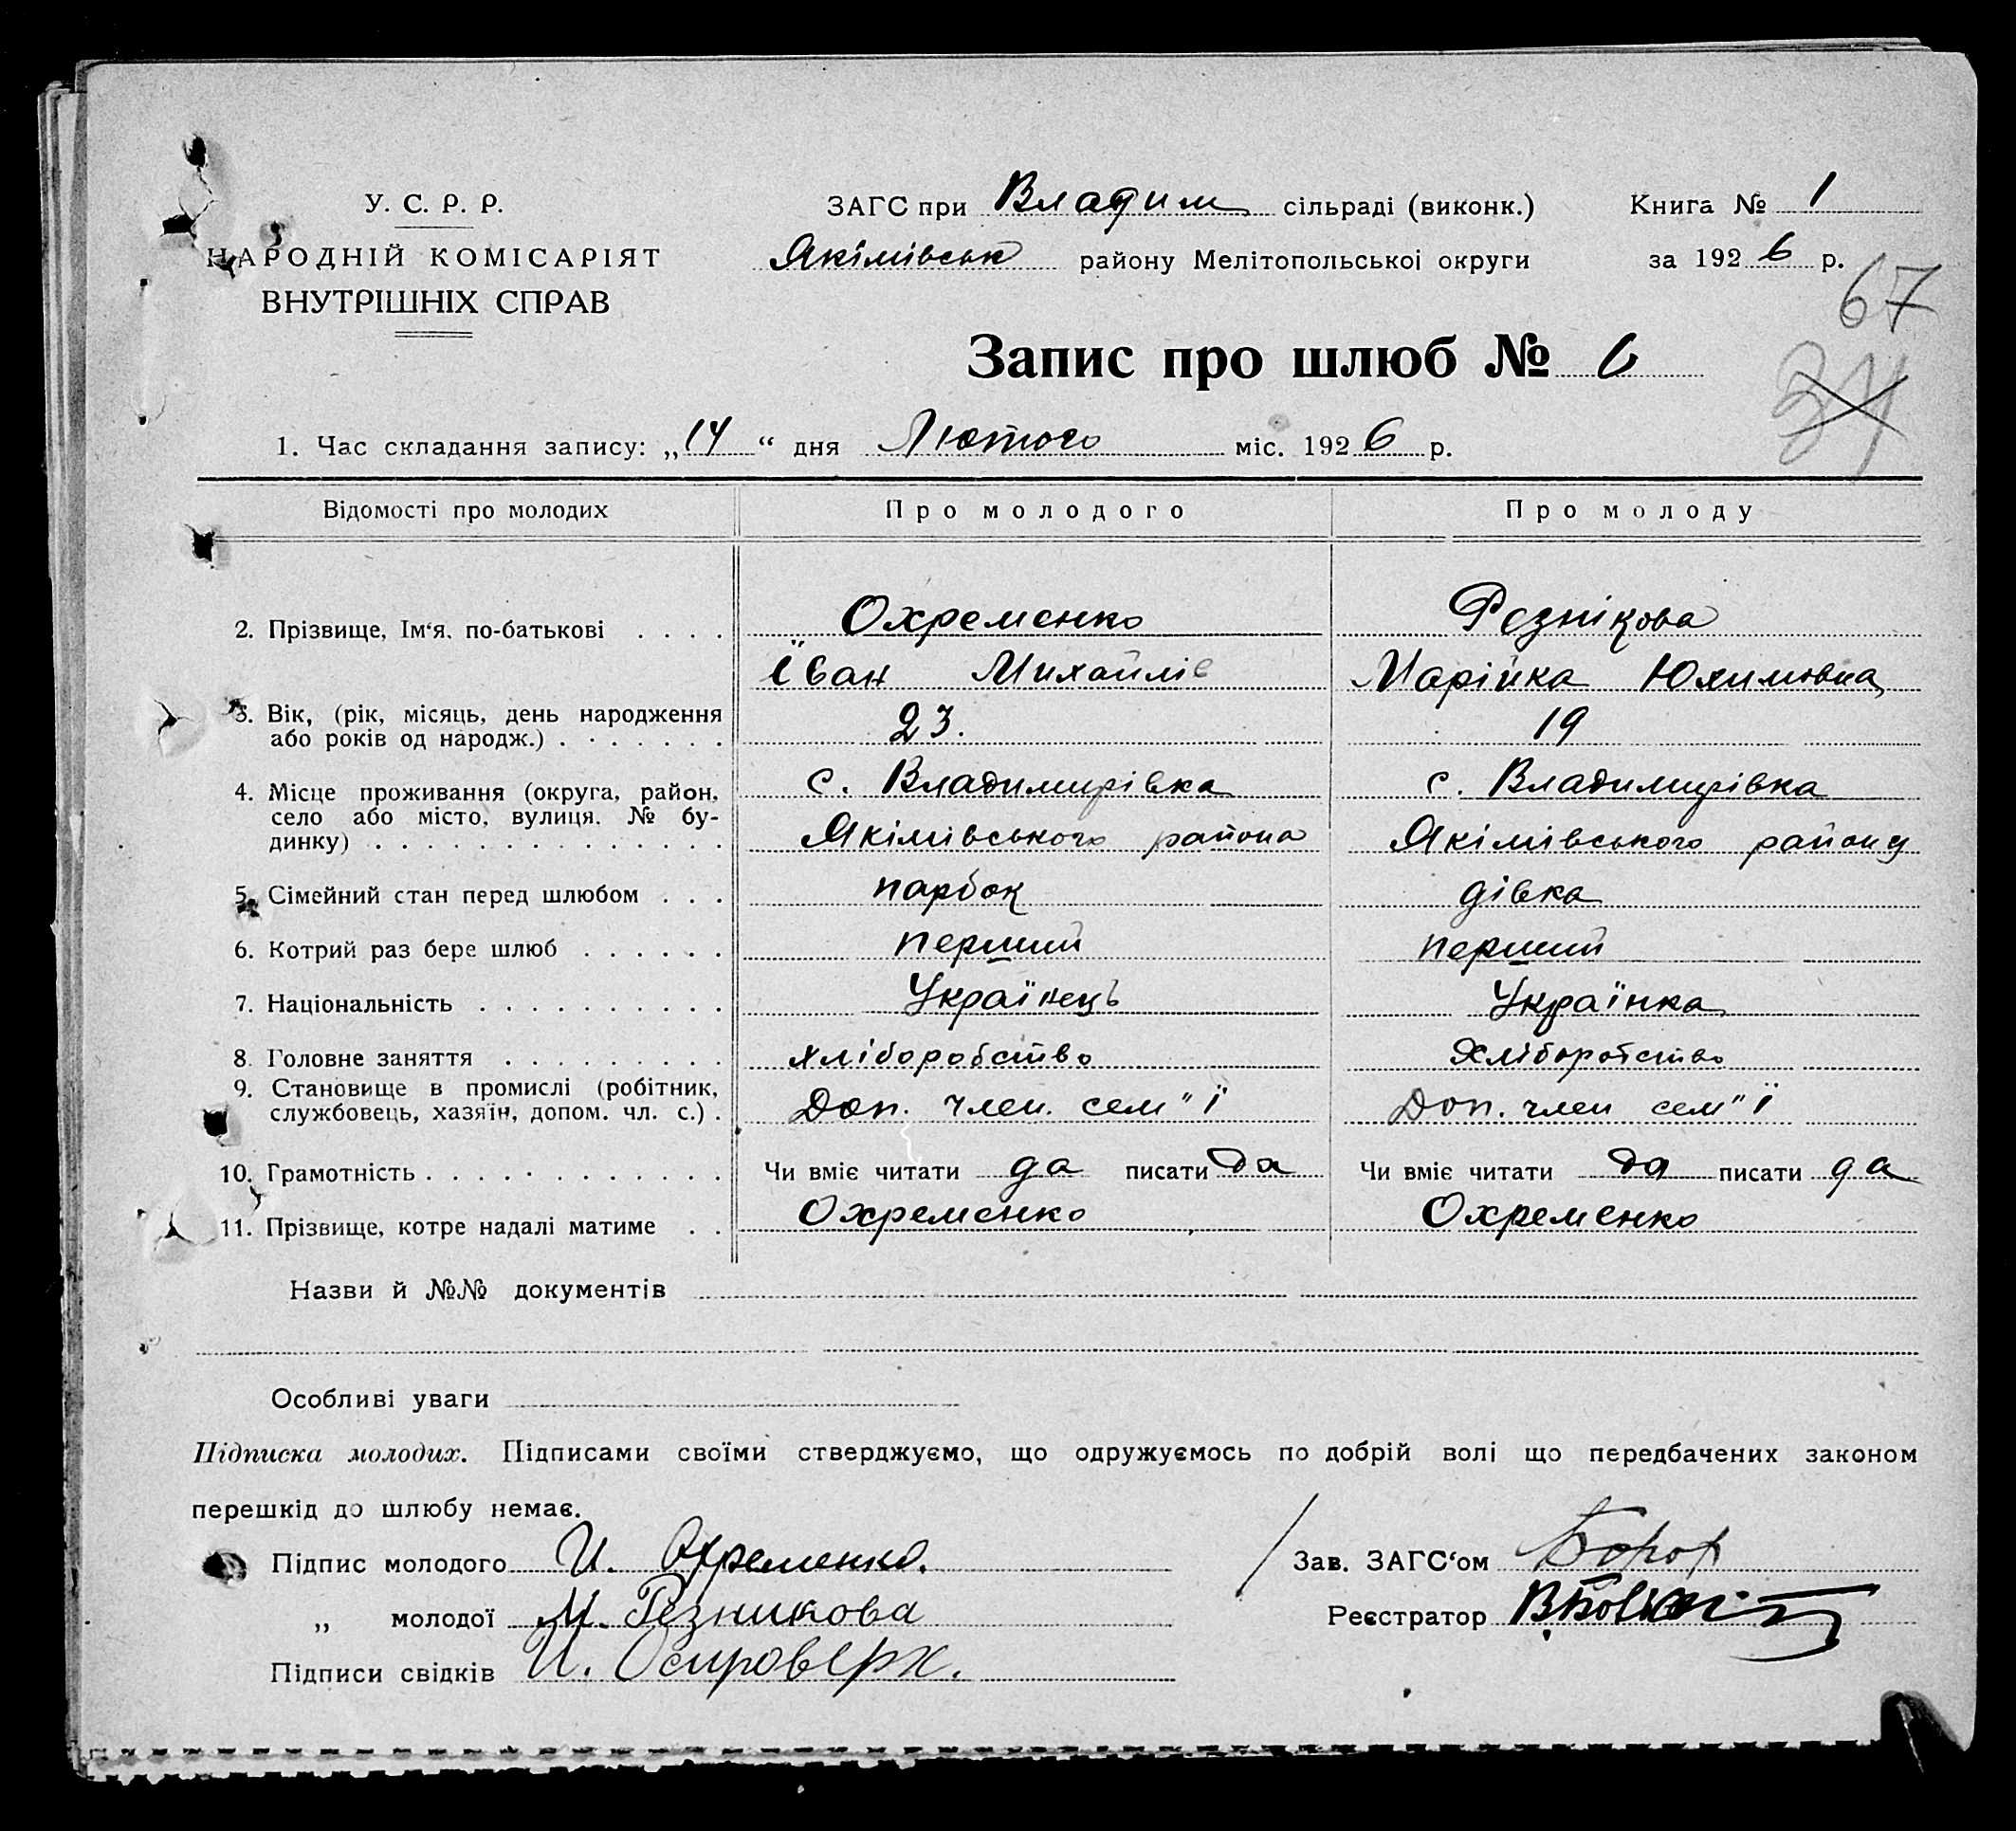 У. С. Р. Р.
НАРОДНІЙ КОМІСАРІЯТ
ВНУТРІШНІХ СПРАВ
ЗАГС при Владим сільраді (виконк.)
Якімівськ району Мелітопольскої округи
Книга № 1
за 1926 р.
67
34
Запис про шлюб № 6
1. Час складання запису: „14“ дня Лютого міс. 1926 р.
Відомості про молодих Про молодого Про молоду
2. Прізвище, Ім‘я, по-батькові . . . . Охременко Резнікова
Іван Михайлів Марійка Юхимовна
3. Вік, (рік, місяць, день народження
або років од народж.) . . . . . . . 23. 19
4. Місце проживання (округа, район, с. Владимирівка с. Владимирівка
село або місто, вулиця, № бу-
динку) . . . . . . . . . . . . . . Якімівського района Якімівського району
5. Сімейний стан перед шлюбом . . . парбок дівка
6. Котрий раз бере шлюб . . . . . . перший перший
7. Національність . . . . . . . . . . Українець Українка
8. Головне заняття . . . . . . . . . хліборобство Хліборобство
9. Становище в промислі (робітник,
службовець, хазяїн, допом. чл. с.) . Доп. член. сем"ї Доп. член сем"ї
10. Грамотність . . . . . . . . . . . . Чи вміє читати да писати да Чи вміє читати да писати да
11. Прізвище, котре надалі матиме . . Охременко Охременко
Назви й №№ документів
Особливі уваги
Підписка молодих. Підписами своїми стверджуємо, що одружуємось по добрій волі що передбачених законом
перешкід до шлюбу немає.
Підпис молодого И. Охременко.
„ молодої М. Резникова
Підписи свідків И. Островерх.
Зав. ЗАГС‘ом
Реєстратор